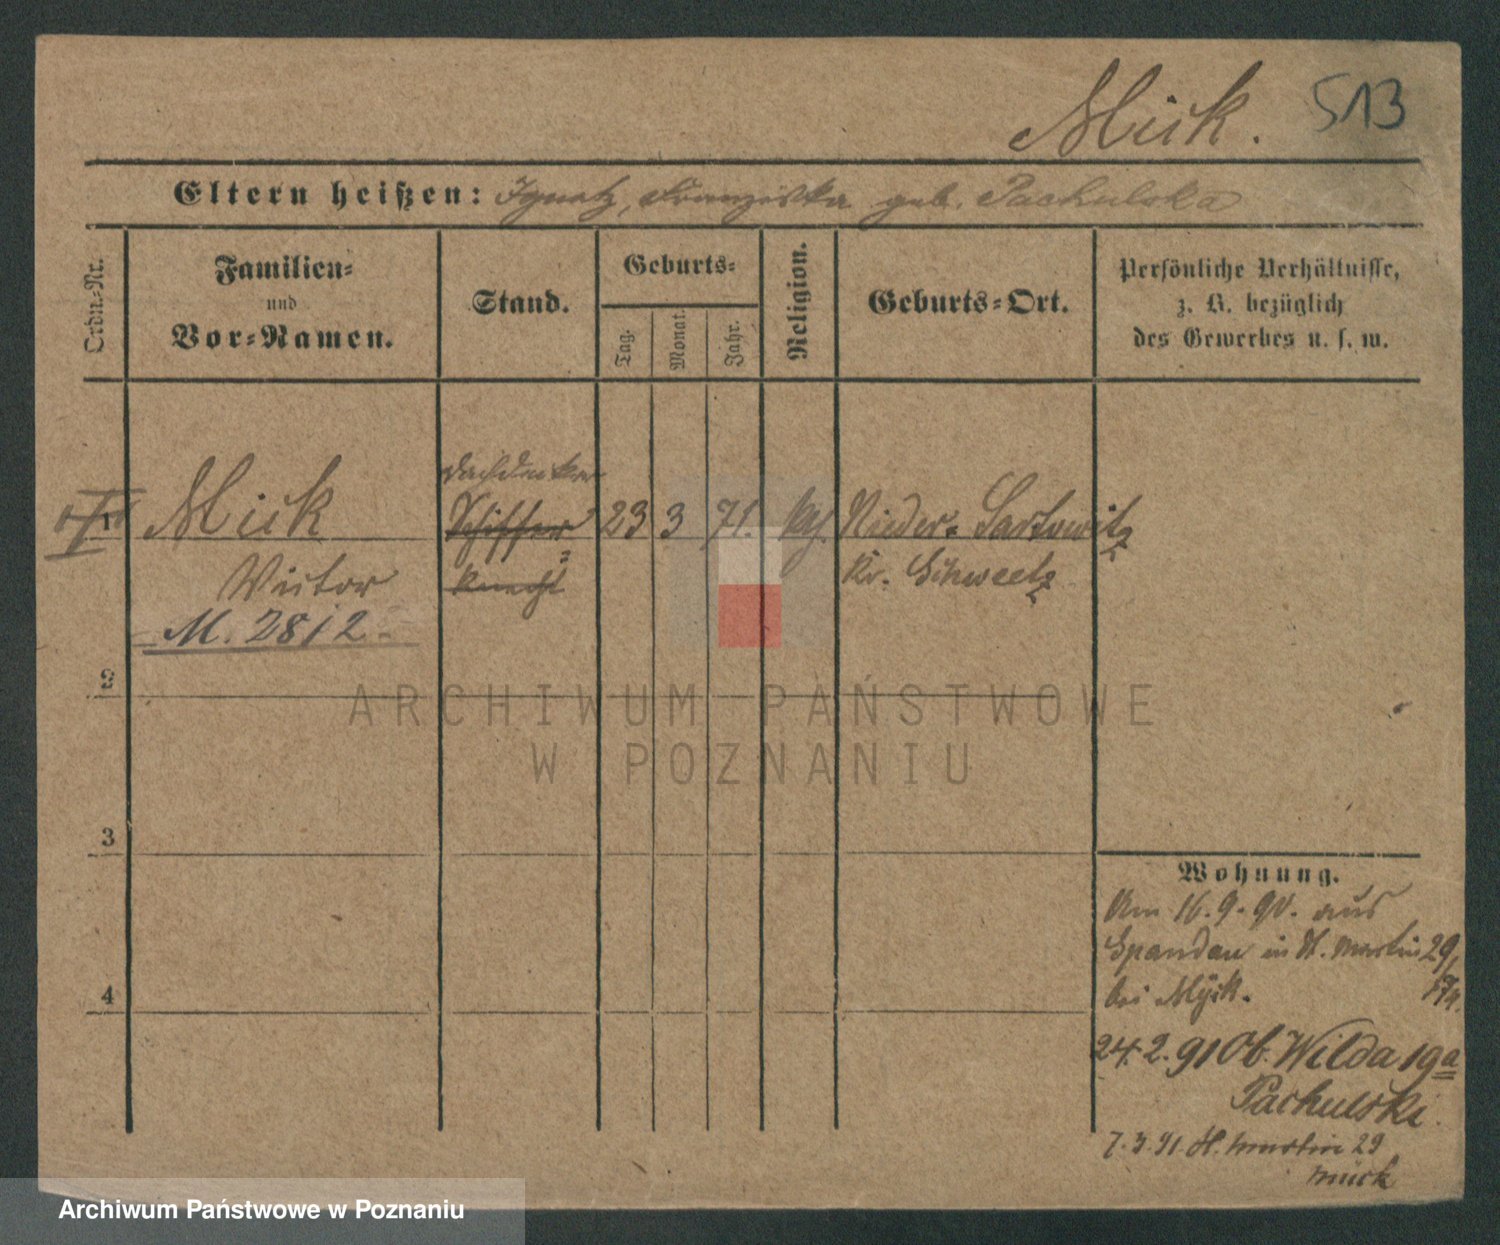 Mick. 513
Eltern heißen: Ignatz, Franziska geb. Pachulska
Ordn.-Nr.
Familien-
und
Vor-Namen.
Stand.
Geburts-
Tag.
Monat.
Jahr.
Religion.
Geburts-Ort.
Persönliche Verhältnisse,
z. B. bezüglich
des Gewerbes u. s. w.
Dachdecker
1 Mick Schiffer 23 3 71. kath. Nieder-Sartowitz
Victor knecht Kr. Schweetz
M. 2812
2
3
4
Wohnung.
Am 16. 9. 90. aus
Spandau in St. Martin 29,
bei Mÿik.
24. 2. 91 Ob. Wilda 19a
Pachulski.
7. 3. 91. St. Martin 29
Mick
ARCHIWUM PAŃSTWOWE
W POZNANIU
Archiwum Państwowe w Poznaniu